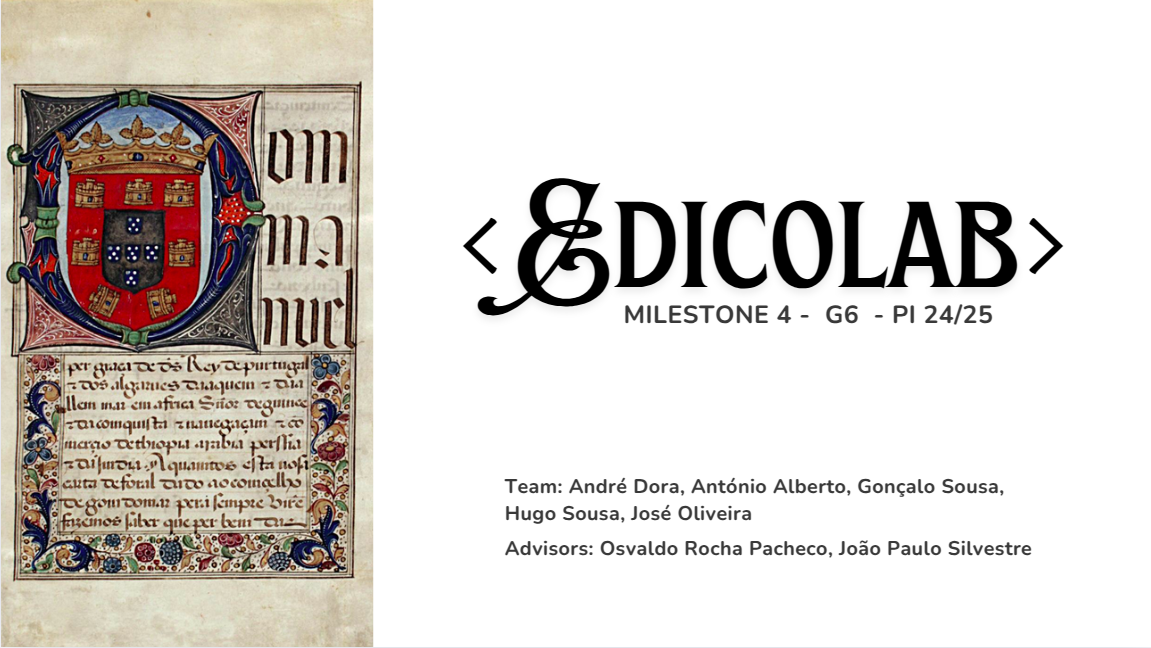 om
ma
nuel
per graça de ds Rey de purtugal
z dos algarues daaquem z daa
llem mar em africa Sñor de guinee
z da comquista z nauegaçam z co
merçio dethiopia arabia perssia
z da Jmdia A quamtos esta nosa
carta de foral dado ao comçelho
de gomdomar pera sempre birē
fazemos saber que per bem das
<EDICOLAB>
MILESTONE 4 - G6 - PI 24/25
Team: André Dora, António Alberto, Gonçalo Sousa,
Hugo Sousa, José Oliveira
Advisors: Osvaldo Rocha Pacheco, João Paulo Silvestre